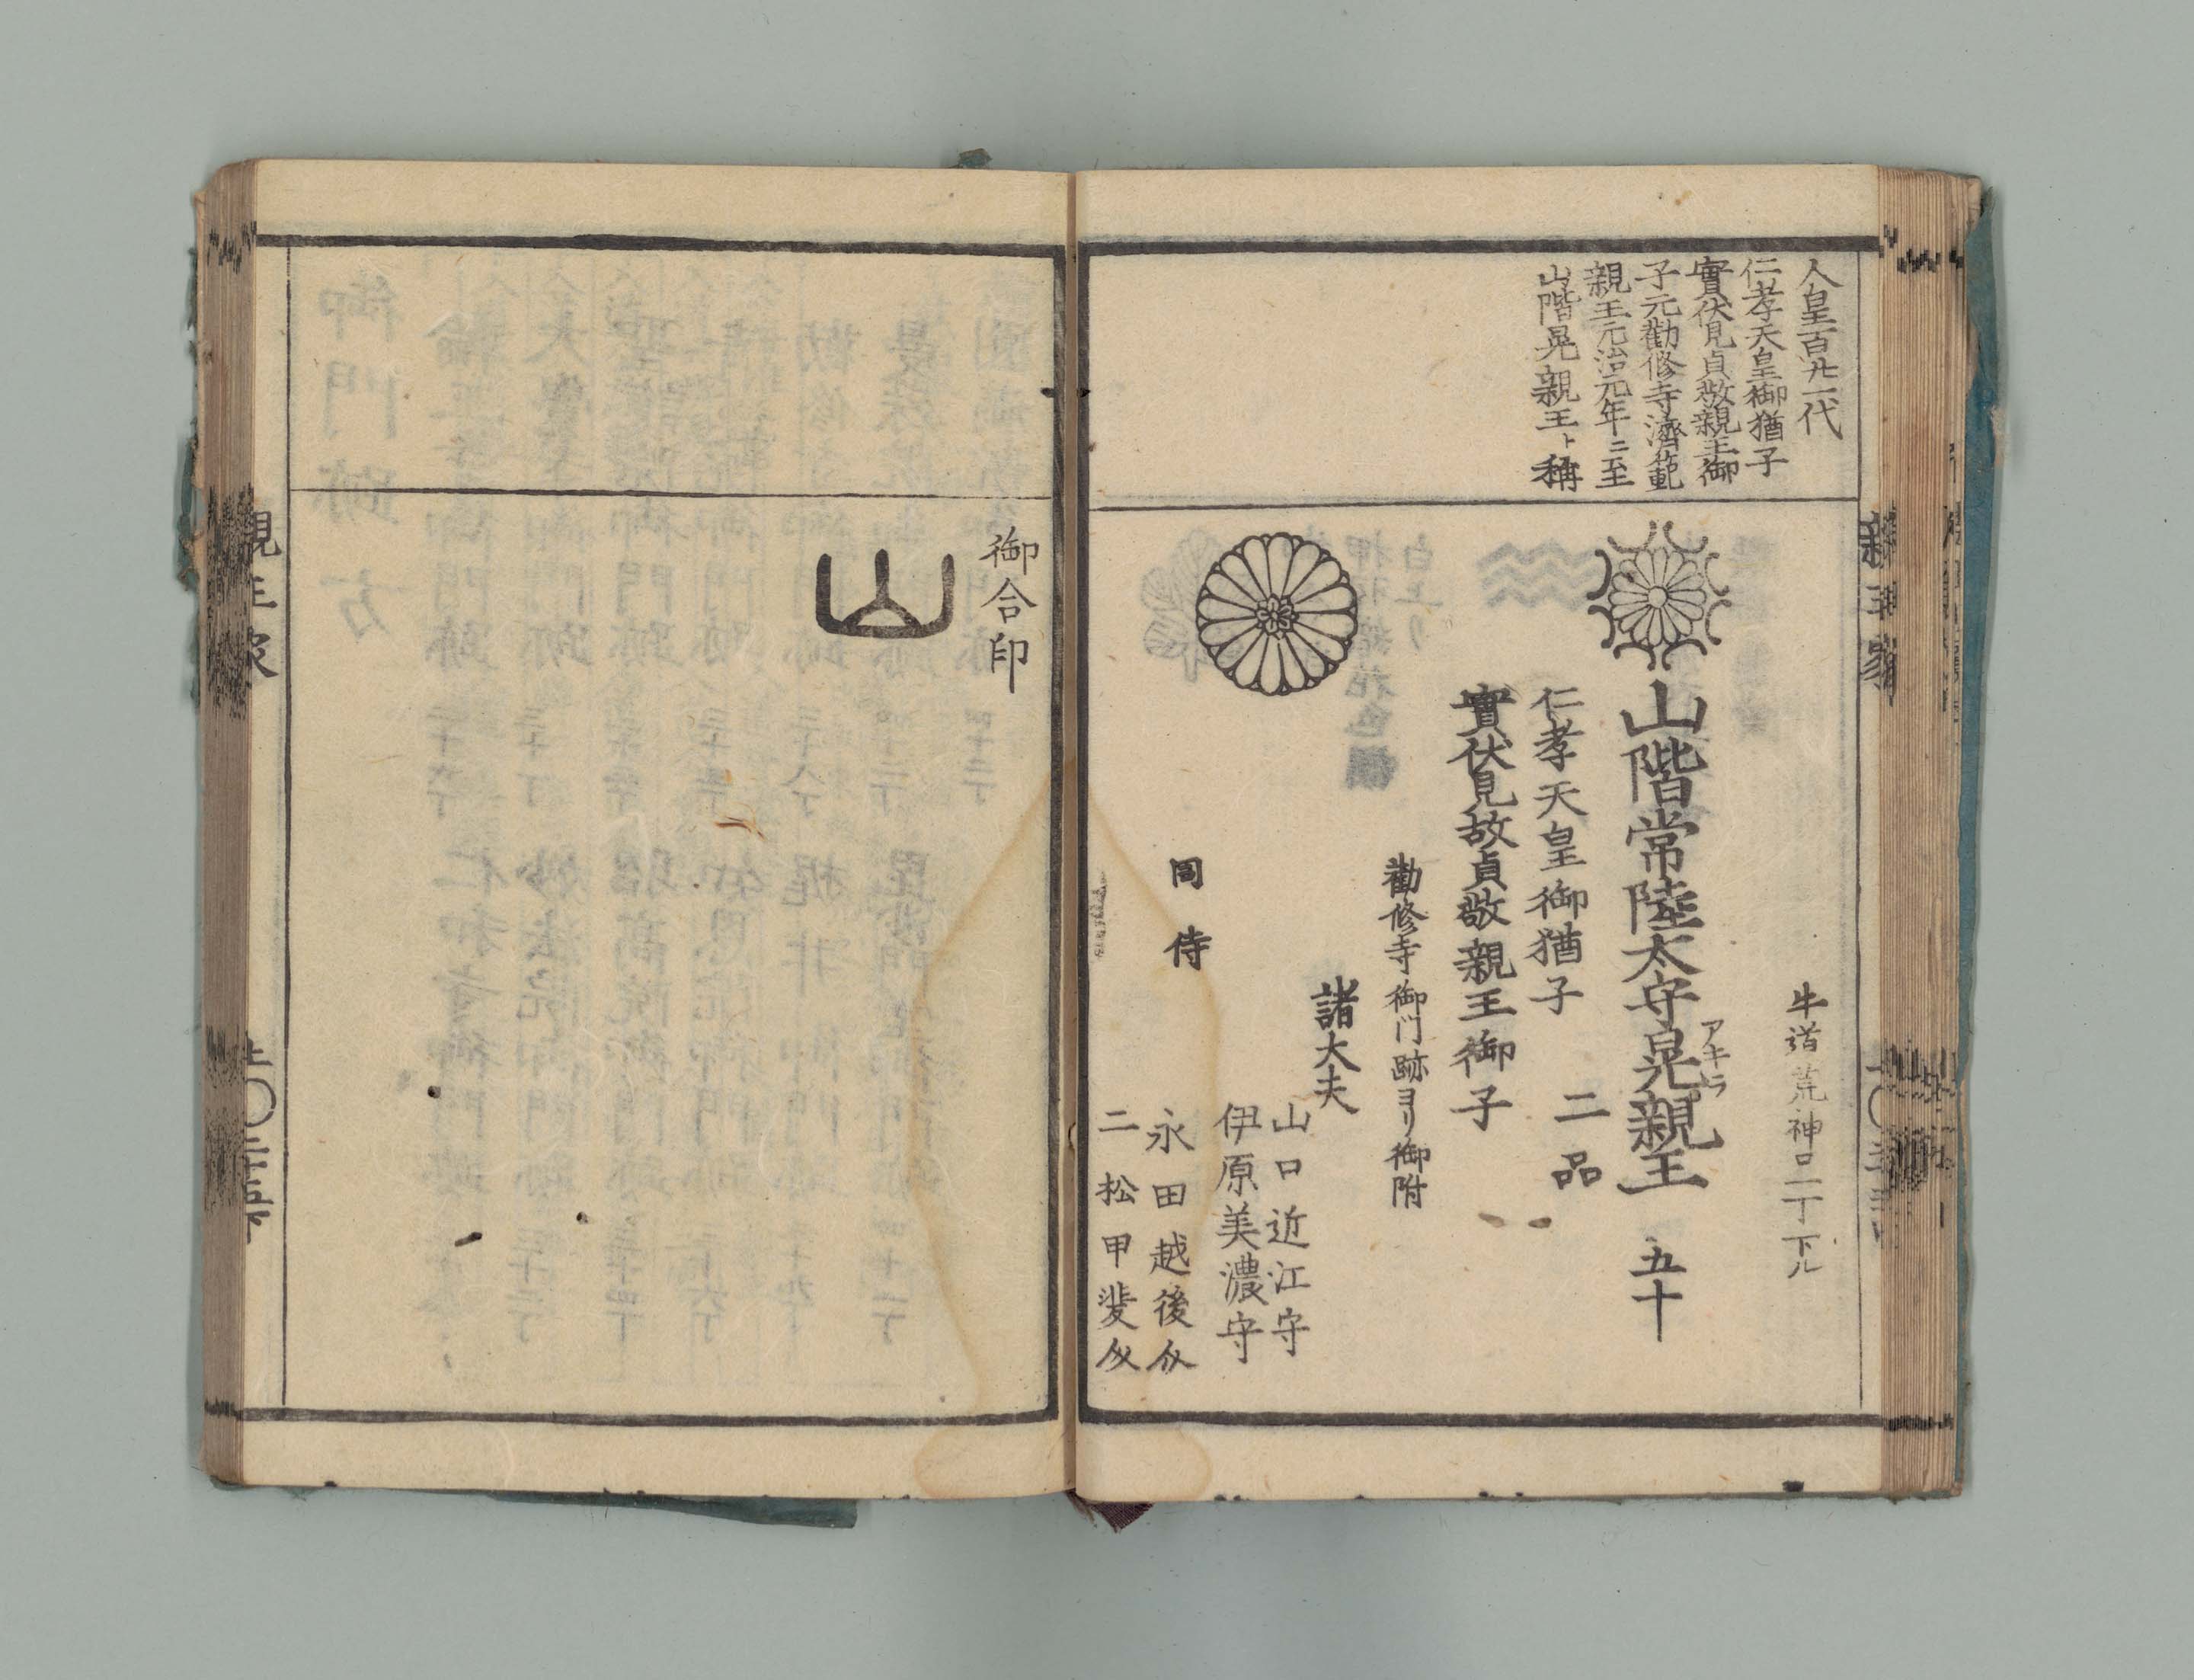 人皇百廿一代
仁孝天皇御猶子
實伏見貞敬親王御
子元勸修寺濟範
親王元治元年ニ至
山階晃親王ト稱
牛道荒神口二丁下ル
山階常陸太守晃親王 五十
アキラ
仁孝天皇御猶子 二品
實伏見故貞敬親王御子
勸修寺御門跡ヨリ御附
諸大夫
山口近江守
伊原美濃守
同侍
永田越後介
二松甲斐介
御合印
山
親王家